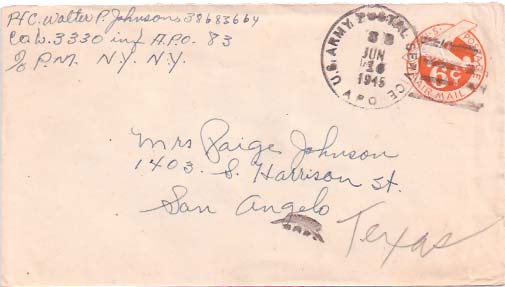 Pfc. Walter P. Johnson 38683664
Co L. 3330 inf A.P.O. 83
c/o P.M. N.Y. N.Y.
U.S. ARMY POSTAL SERVICE
JUN
16
1945
A.P.O.
U.S. POSTAGE
6¢
AIR MAIL
Mrs Paige Johnson
1403 S. Harrison St.
San Angelo
Texas